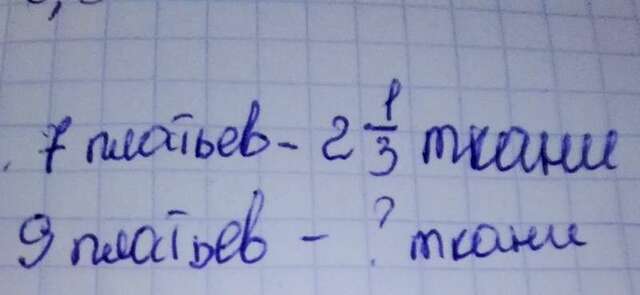 7 платьев - 2 1/3 ткани
9 платьев - ? ткани